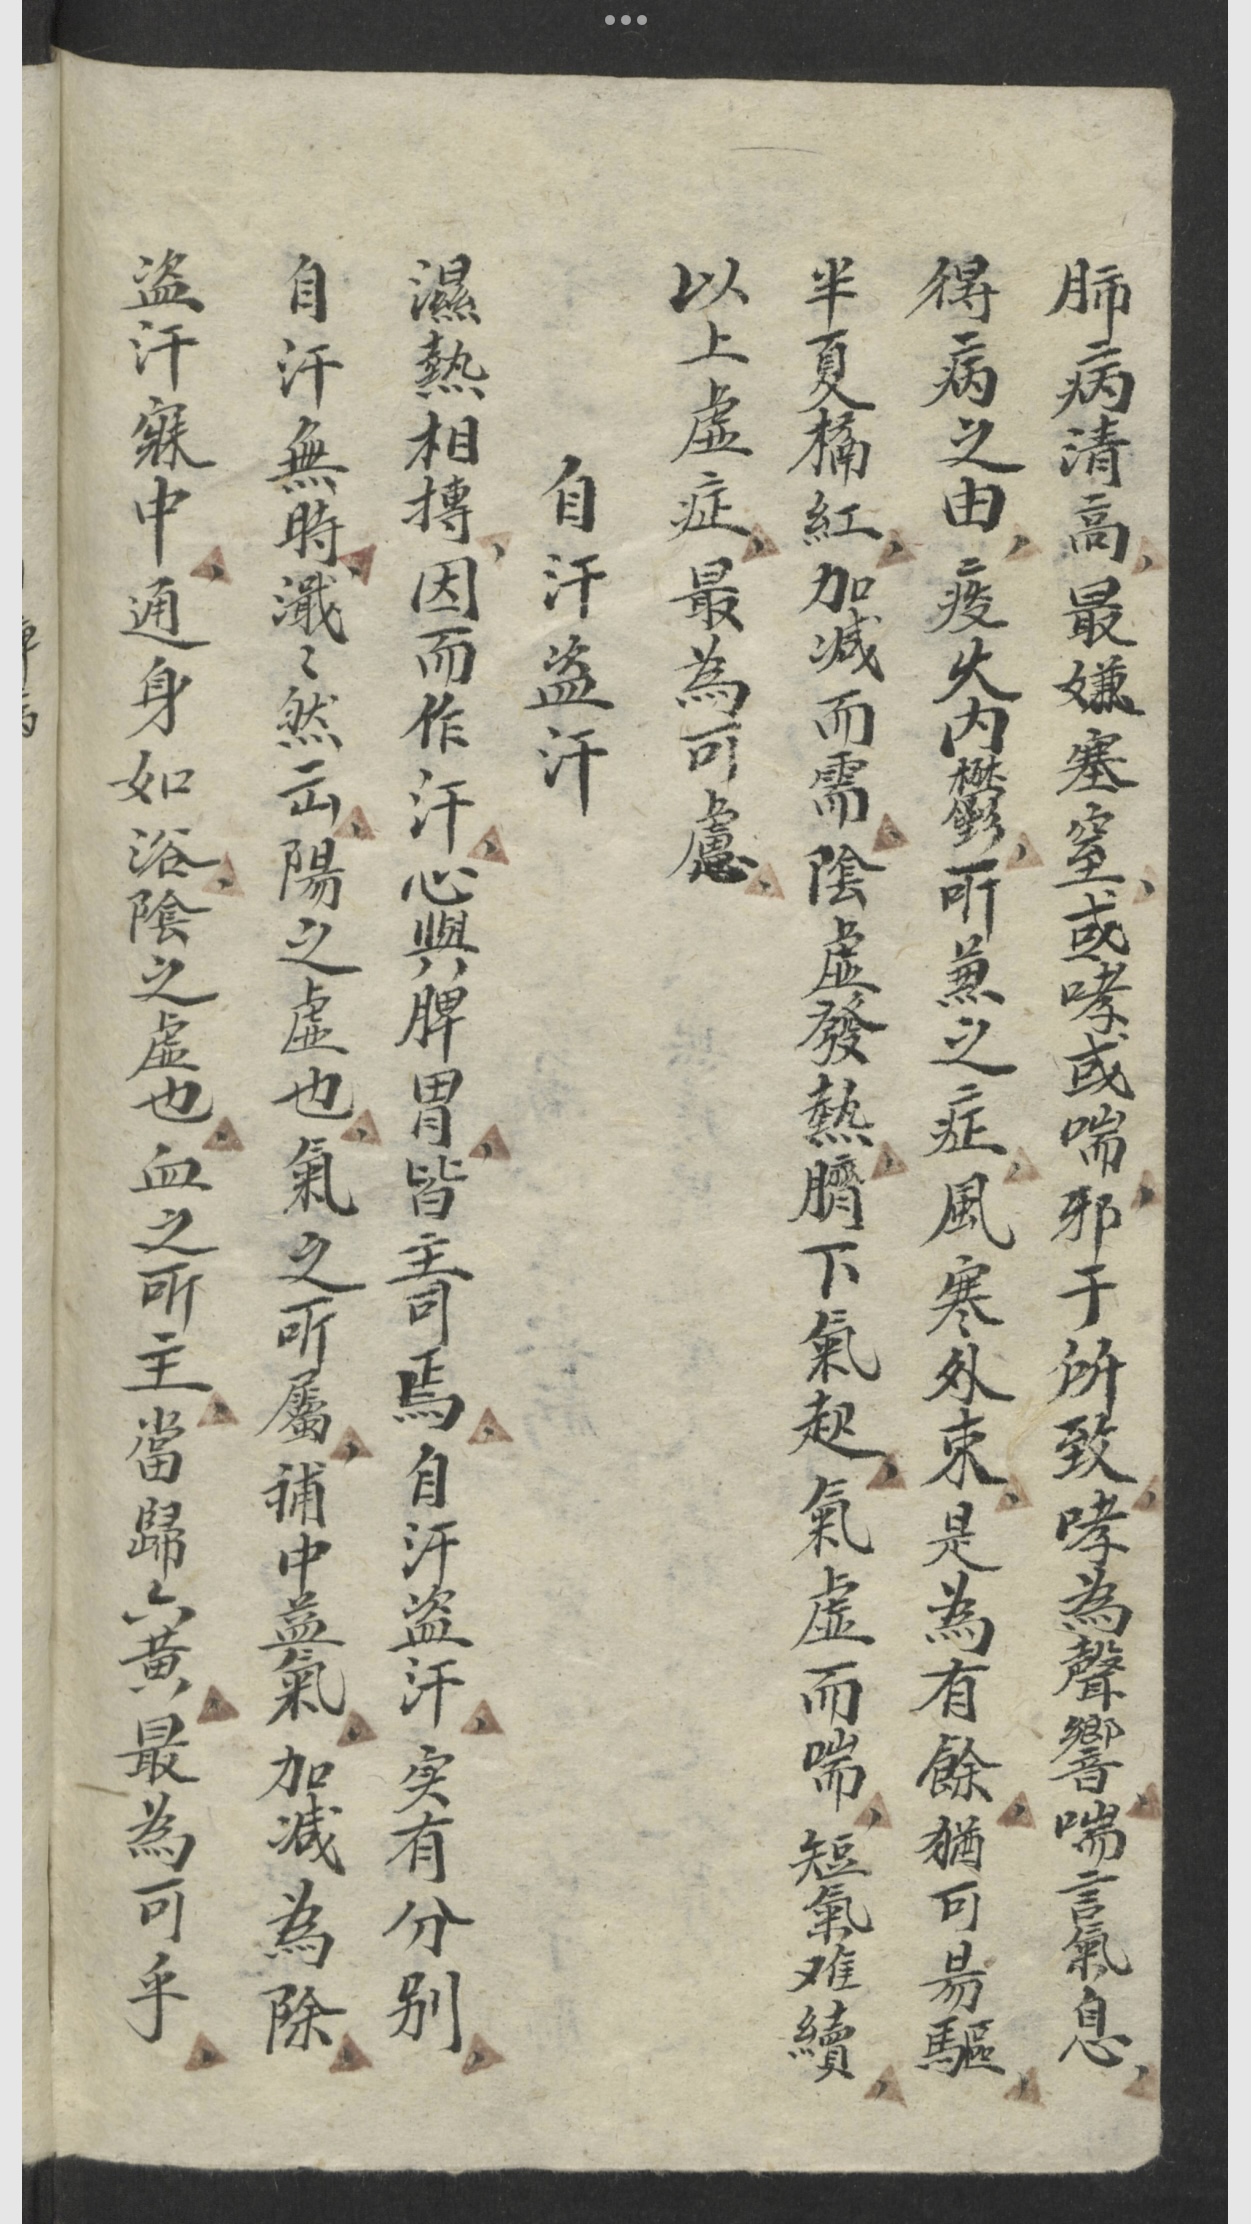 肺病清高最嫌塞窒或哮或喘邪于所致哮為聲響喘言氣息
得病之由痰火内欝所兼之症風寒外束是為有餘猶可易驅
半夏橘紅加减而需陰虛發熱臍下氣起氣虛而喘短氣难續
以上虛症最為可慮
自汗盗汗
濕熱相搏因而作汗心與脾胃皆主司焉自汗盗汗实有分别
自汗無時濈〻然出陽之虛也氣之所屬補中益氣加减為除
盗汗寐中通身如浴陰之虛也血之所主當歸六黄最為可乎